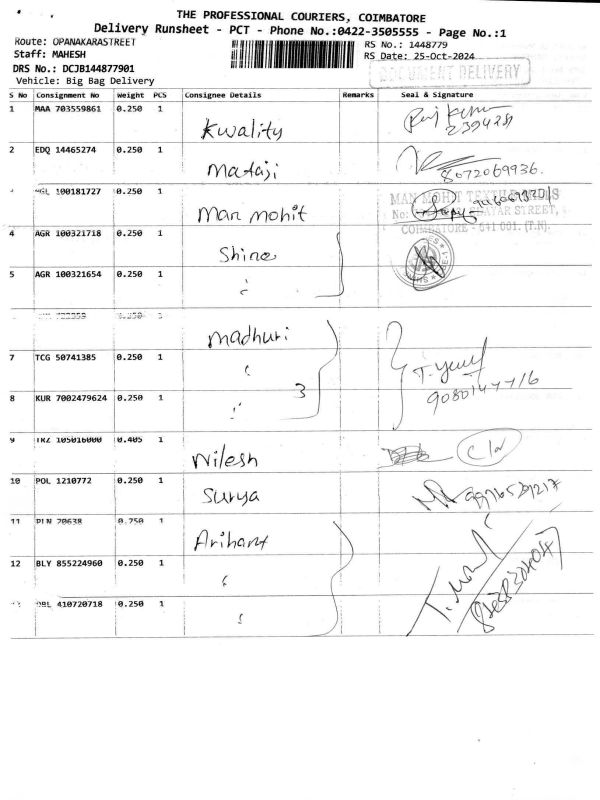 THE PROFESSIONAL COURIERS, COIMBATORE
Delivery Runsheet - PCT - Phone No.:0422-3505555 - Page No.:1
Route: OPANAKARASTREET
RS No.: 1448779
Staff: MAHESH
RS Date: 25-Oct-2024
DRS No.: DCJB144877901
DOCUMENT DELIVERY
Vehicle: Big Bag Delivery
S No Consignment No Weight PCS Consignee Details Remarks Seal & Signature
1 MAA 703559861 0.250 1 Kwality
2 EDQ 14465274 0.250 1 Mataji 8072069936.
100181727 0.250 1 Man mohit
MAN MOHIT
STREET,
COIMBATORE - 641 001. (T.N).
4 AGR 100321718 0.250 1 Shine
5 AGR 100321654 0.250 1 "
0.250 1 Madhuri
7 TCG 50741385 0.250 1 "
8 KUR 7002479624 0.250 1 " 3
9 TRZ 105016000 0.405 1 Nilesh
10 POL 1210772 0.250 1 Surya
11 PLN 70638 0.250 1 Arihant
12 BLY 855224960 0.250 1 "
410720718 0.250 1 "